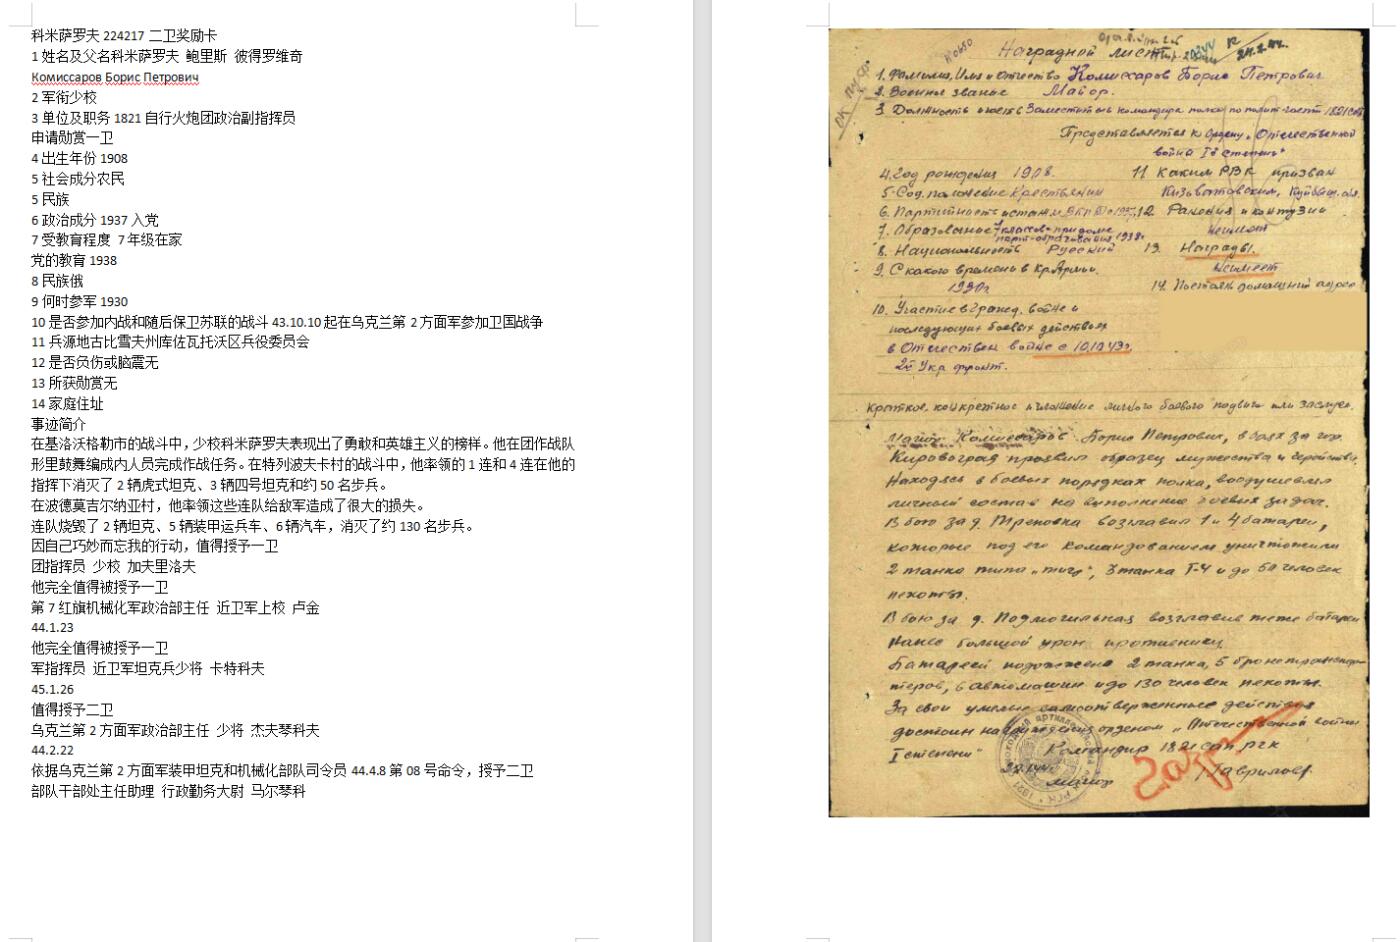 科米萨罗夫 224217 二卫奖励卡
1 姓名及父名科米萨罗夫 鲍里斯 彼得罗维奇
Комиссаров Борис Петрович
2 军衔少校
3 单位及职务 1821 自行火炮团政治副指挥员
申请勋赏一卫
4 出生年份 1908
5 社会成分农民
5 民族
6 政治成分 1937 入党
7 受教育程度 7 年级在家
党的教育 1938
8 民族俄
9 何时参军 1930
10 是否参加内战和随后保卫苏联的战斗 43.10.10 起在乌克兰第 2 方面军参加卫国战争
11 兵源地古比雪夫州库佐瓦托沃区兵役委员会
12 是否负伤或脑震无
13 所获勋赏无
14 家庭住址
事迹简介
在基洛沃格勒市的战斗中，少校科米萨罗夫表现出了勇敢和英雄主义的榜样。他在团作战队
形里鼓舞编成内人员完成作战任务。在特列波夫卡村的战斗中，他率领的 1 连和 4 连在他的
指挥下消灭了 2 辆虎式坦克、3 辆四号坦克和约 50 名步兵。
在波德莫吉尔纳亚村，他率领这些连队给敌军造成了很大的损失。
连队烧毁了 2 辆坦克、5 辆装甲运兵车、6 辆汽车，消灭了约 130 名步兵。
因自己巧妙而忘我的行动，值得授予一卫
团指挥员 少校 加夫里洛夫
他完全值得被授予一卫
第 7 红旗机械化军政治部主任 近卫军上校 卢金
44.1.23
他完全值得被授予一卫
军指挥员 近卫军坦克兵少将 卡特科夫
45.1.26
值得授予二卫
乌克兰第 2 方面军政治部主任 少将 杰夫琴科夫
44.2.22
依据乌克兰第 2 方面军装甲坦克和机械化部队司令员 44.4.8 第 08 号命令，授予二卫
部队干部处主任助理 行政勤务大尉 马尔琴科
Наградной лист
1. Фамилия, Имя и Отчество Комиссаров Борис Петрович
2. Военное звание Майор.
3. Должность и часть Заместитель командира полка по политчасти 1821 сап
Представляется к Ордену „Отечественной
война I й степень"
4. Год рождения 1908.
5. Соц. положение Крестьянин
6. Партийность
7. Образование
8. Национальность Русский
9. С какого времени в Кр. Армии.
1930г.
10. Участие в гражд. войне и
последующих боевых действиях
в Отечествен войне с 10.10.43г.
2й Укр фронт.
11 Каким РВК призван
12. Ранения и контузии
неимеет
13. Награды.
Неимеет
14. Постоян домашний адрес
Краткое, конкретное изложение личного боевого подвига или заслуг.
Майор Комиссаров Борис Петрович, в боях за гор.
Кировоград проявил образец мужества и геройства.
Находясь в боевых порядках полка, воодушевлял
личный состав на выполнение боевых задач.
В бою за д. возглавил 1 и 4 батареи,
которые под его командованием уничтожили
2 танка типа „тигр", 3 танка Т-4 и до 50 человек
пехоты.
В бою за д. Подмогильная возглавив теже батареи
нанес большой урон противнику.
Батареей подожжено 2 танка, 5 бронетранспор-
теров, 6 автомашин и до 130 человек пехоты.
За свои умелые самоотверженные действия
достоин награждения орденом „Отечественной войны
I степени"
Командир 1821 сап ргк
майор Гаврилов